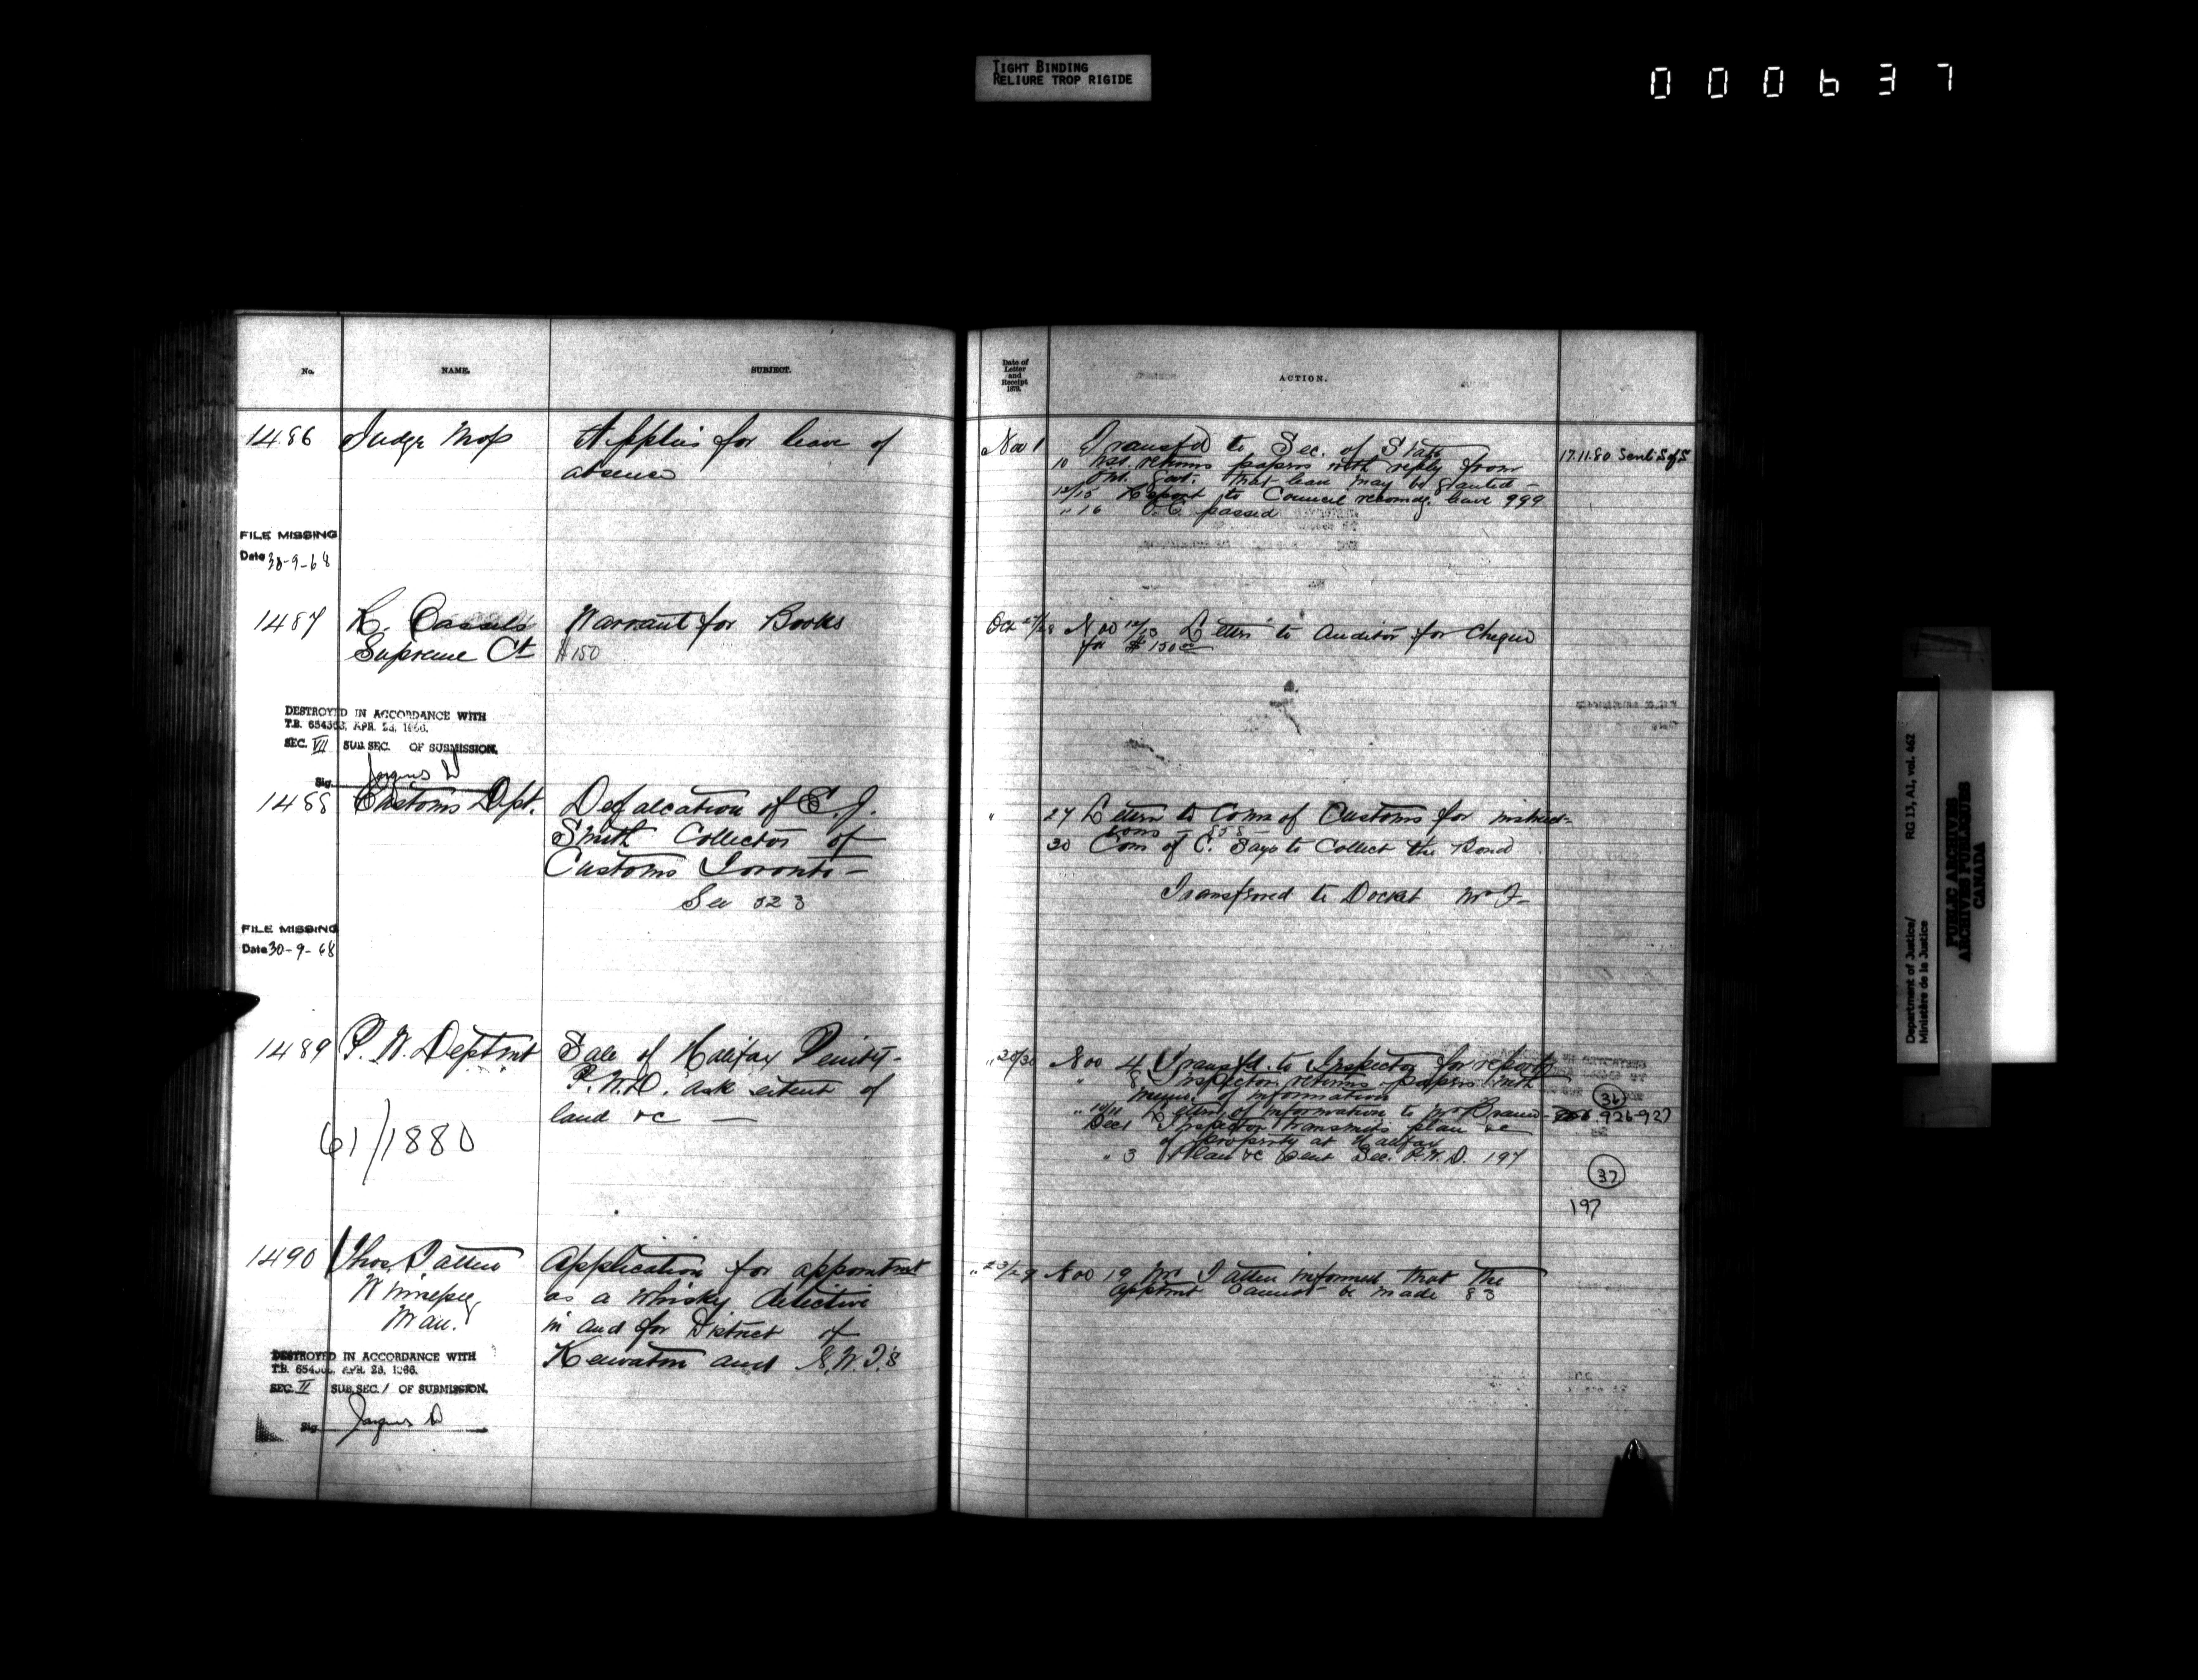 TIGHT BINDING
RELIURE TROP RIGIDE
000637
No.
NAME.
SUBJECT.
Date of
Letter
and
Receipt
1879.
ACTION.
1486
Judge Moss
Applies for leave of
absence
Nov 1
Transfd to Sec. of State
10 returns papers with reply from
Ont. Govt. that leave may be granted -
12/15 Report to Council recomdg. leave 999
" 16 O.C. passed
17.11.80 Sent S of S
FILE MISSING
Date 30-9-68
1487
R. Cassels
Supreme Ct
Warrant for Books
$150
Oct 27/28
Nov 12/13 Letter to Auditor for Cheque
for $150
DESTROYED IN ACCORDANCE WITH
T.B. 654363, APR. 28, 1966.
SEC. VII SUB. SEC. OF SUBMISSION.
Sig.
1488
Customs Dpt.
Defalcation of
Smith Collector of
Customs Toronto -
See 323
"
27 Letter to Comr of Customs for instruct-
ions - 858 -
30 Com of C. says to Collect the Bond
Transferred to Docket Mr F-
FILE MISSING
Date 30-9-68
1489
P. W. Deptmt
Sale of Halifax Penity -
P.W.D. ask extent of
land &c -
61/1880
" 28/30
Nov 4 Transfd. to Inspector for report
" 8 Inspector returns papers with
memo. of information
" 10/11 Letter of information to Mr Braun - 926-927
Dec 1 Inspector transmits plan &c
of property at Halifax
" 3 Plan &c sent Sec. P.W.D. 197
36
37
197
1490
Thos. Patten
Winnipeg
Man.
Application for appointmt
as a Whisky detective
in and for District of
Keewatin and N.W.T.'s
" 23/29
Nov 19 Mr Patten informed that the
apptmt cannot be made 83
DESTROYED IN ACCORDANCE WITH
T.B. 654363, APR. 28, 1966.
SEC. II SUB. SEC. / OF SUBMISSION.
Sig.
Department of Justice/
Ministère de la Justice
RG 13, A1, vol. 462
PUBLIC ARCHIVES
ARCHIVES PUBLIQUES
CANADA